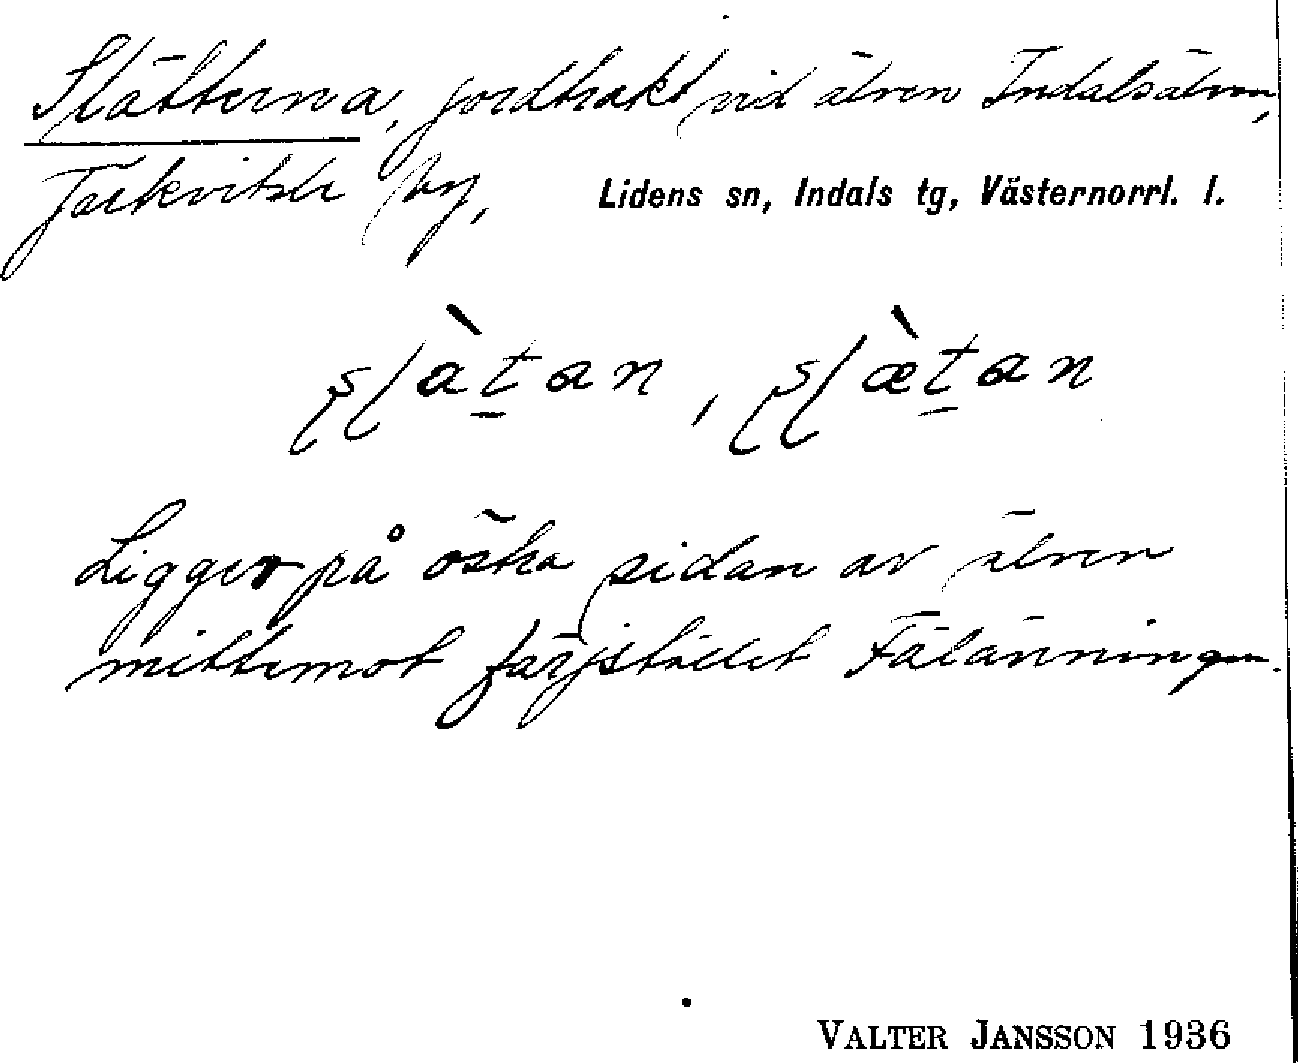 Slätterna, jordtrakt vid älven Indalsälven,
Järkvitsle by, Lidens sn, Indals tg, Västernorrl. l.
ʂɭàt̠an, ʂɭæ̀t̠an
Ligger på östra sidan av älven
mittemot färjstället Fälänningen.
VALTER JANSSON 1936